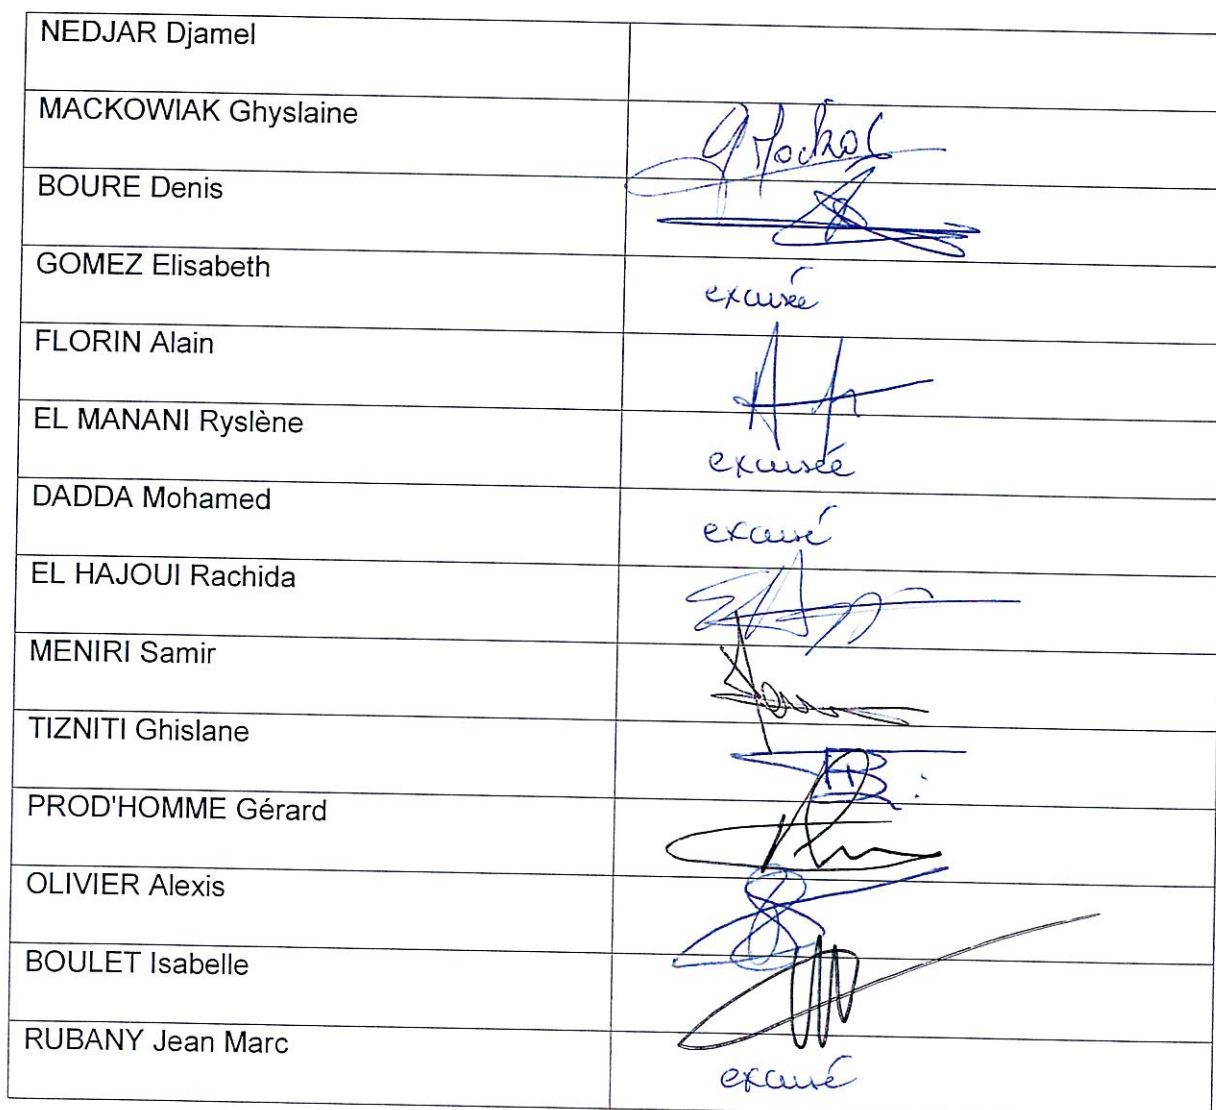 NEDJAR Djamel
MACKOWIAK Ghyslaine
BOURE Denis
GOMEZ Elisabeth
excusée
FLORIN Alain
EL MANANI Ryslène
excusée
DADDA Mohamed
excusé
EL HAJOUI Rachida
MENIRI Samir
TIZNITI Ghislane
PROD'HOMME Gérard
OLIVIER Alexis
BOULET Isabelle
RUBANY Jean Marc
excusé